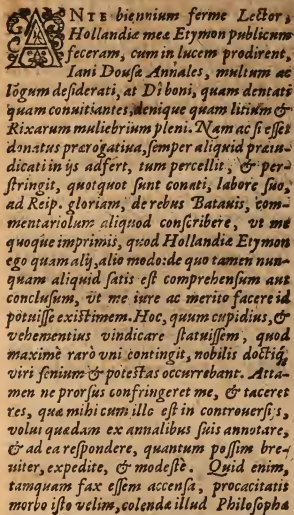 ANTE biennium ferme Lector,
Hollandiæ meæ Etymon publicum
feceram, cum in lucem prodirent,
Iani Dousæ Annales, multum ac
lõgum desiderati, at Dî boni, quam dentati
quam conuitiantes, denique quam litium &
Rixarum muliebrium pleni. Nam ac si esset
donatus prærogatiua, semper aliquid præiu-
dicati in ijs adfert, tum percellit, & per-
stringit, quotquot sunt conati, labore suo,
ad Reip. gloriam, de rebus Batauis, com-
mentariolum aliquod conscribere, vt me
quoque imprimis, quod Hollandiæ Etymon
ego quam alij, alio modo: de quo tamen nun-
quam aliquid satis est comprehensum aut
conclusum, vt me iure ac merito facere id
potuisse existimem. Hoc, quum cupidius, &
vehementius vindicare statuissem, quod
maximè rarò vni contingit, nobilis doctiq́;
viri senium & potestas occurrebant. Atta-
men ne prorsus confringeret me, & taceret
res, quæ mihi cum illo est in controuersijs,
volui quædam ex annalibus suis annotare,
& ad ea respondere, quantum possim bre-
uiter, expedite, & modestè. Quid enim,
tamquam fax essem accensa, procacitatis
morbo isto velim, colenda illud Philosopha